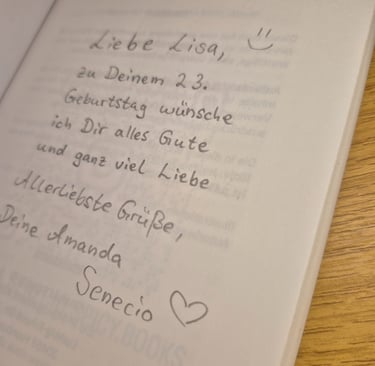 Liebe Lisa,
zu Deinem 23.
Geburtstag wünsche
ich Dir alles Gute
und ganz viel Liebe
Allerliebste Grüße,
Deine Amanda
Senecio